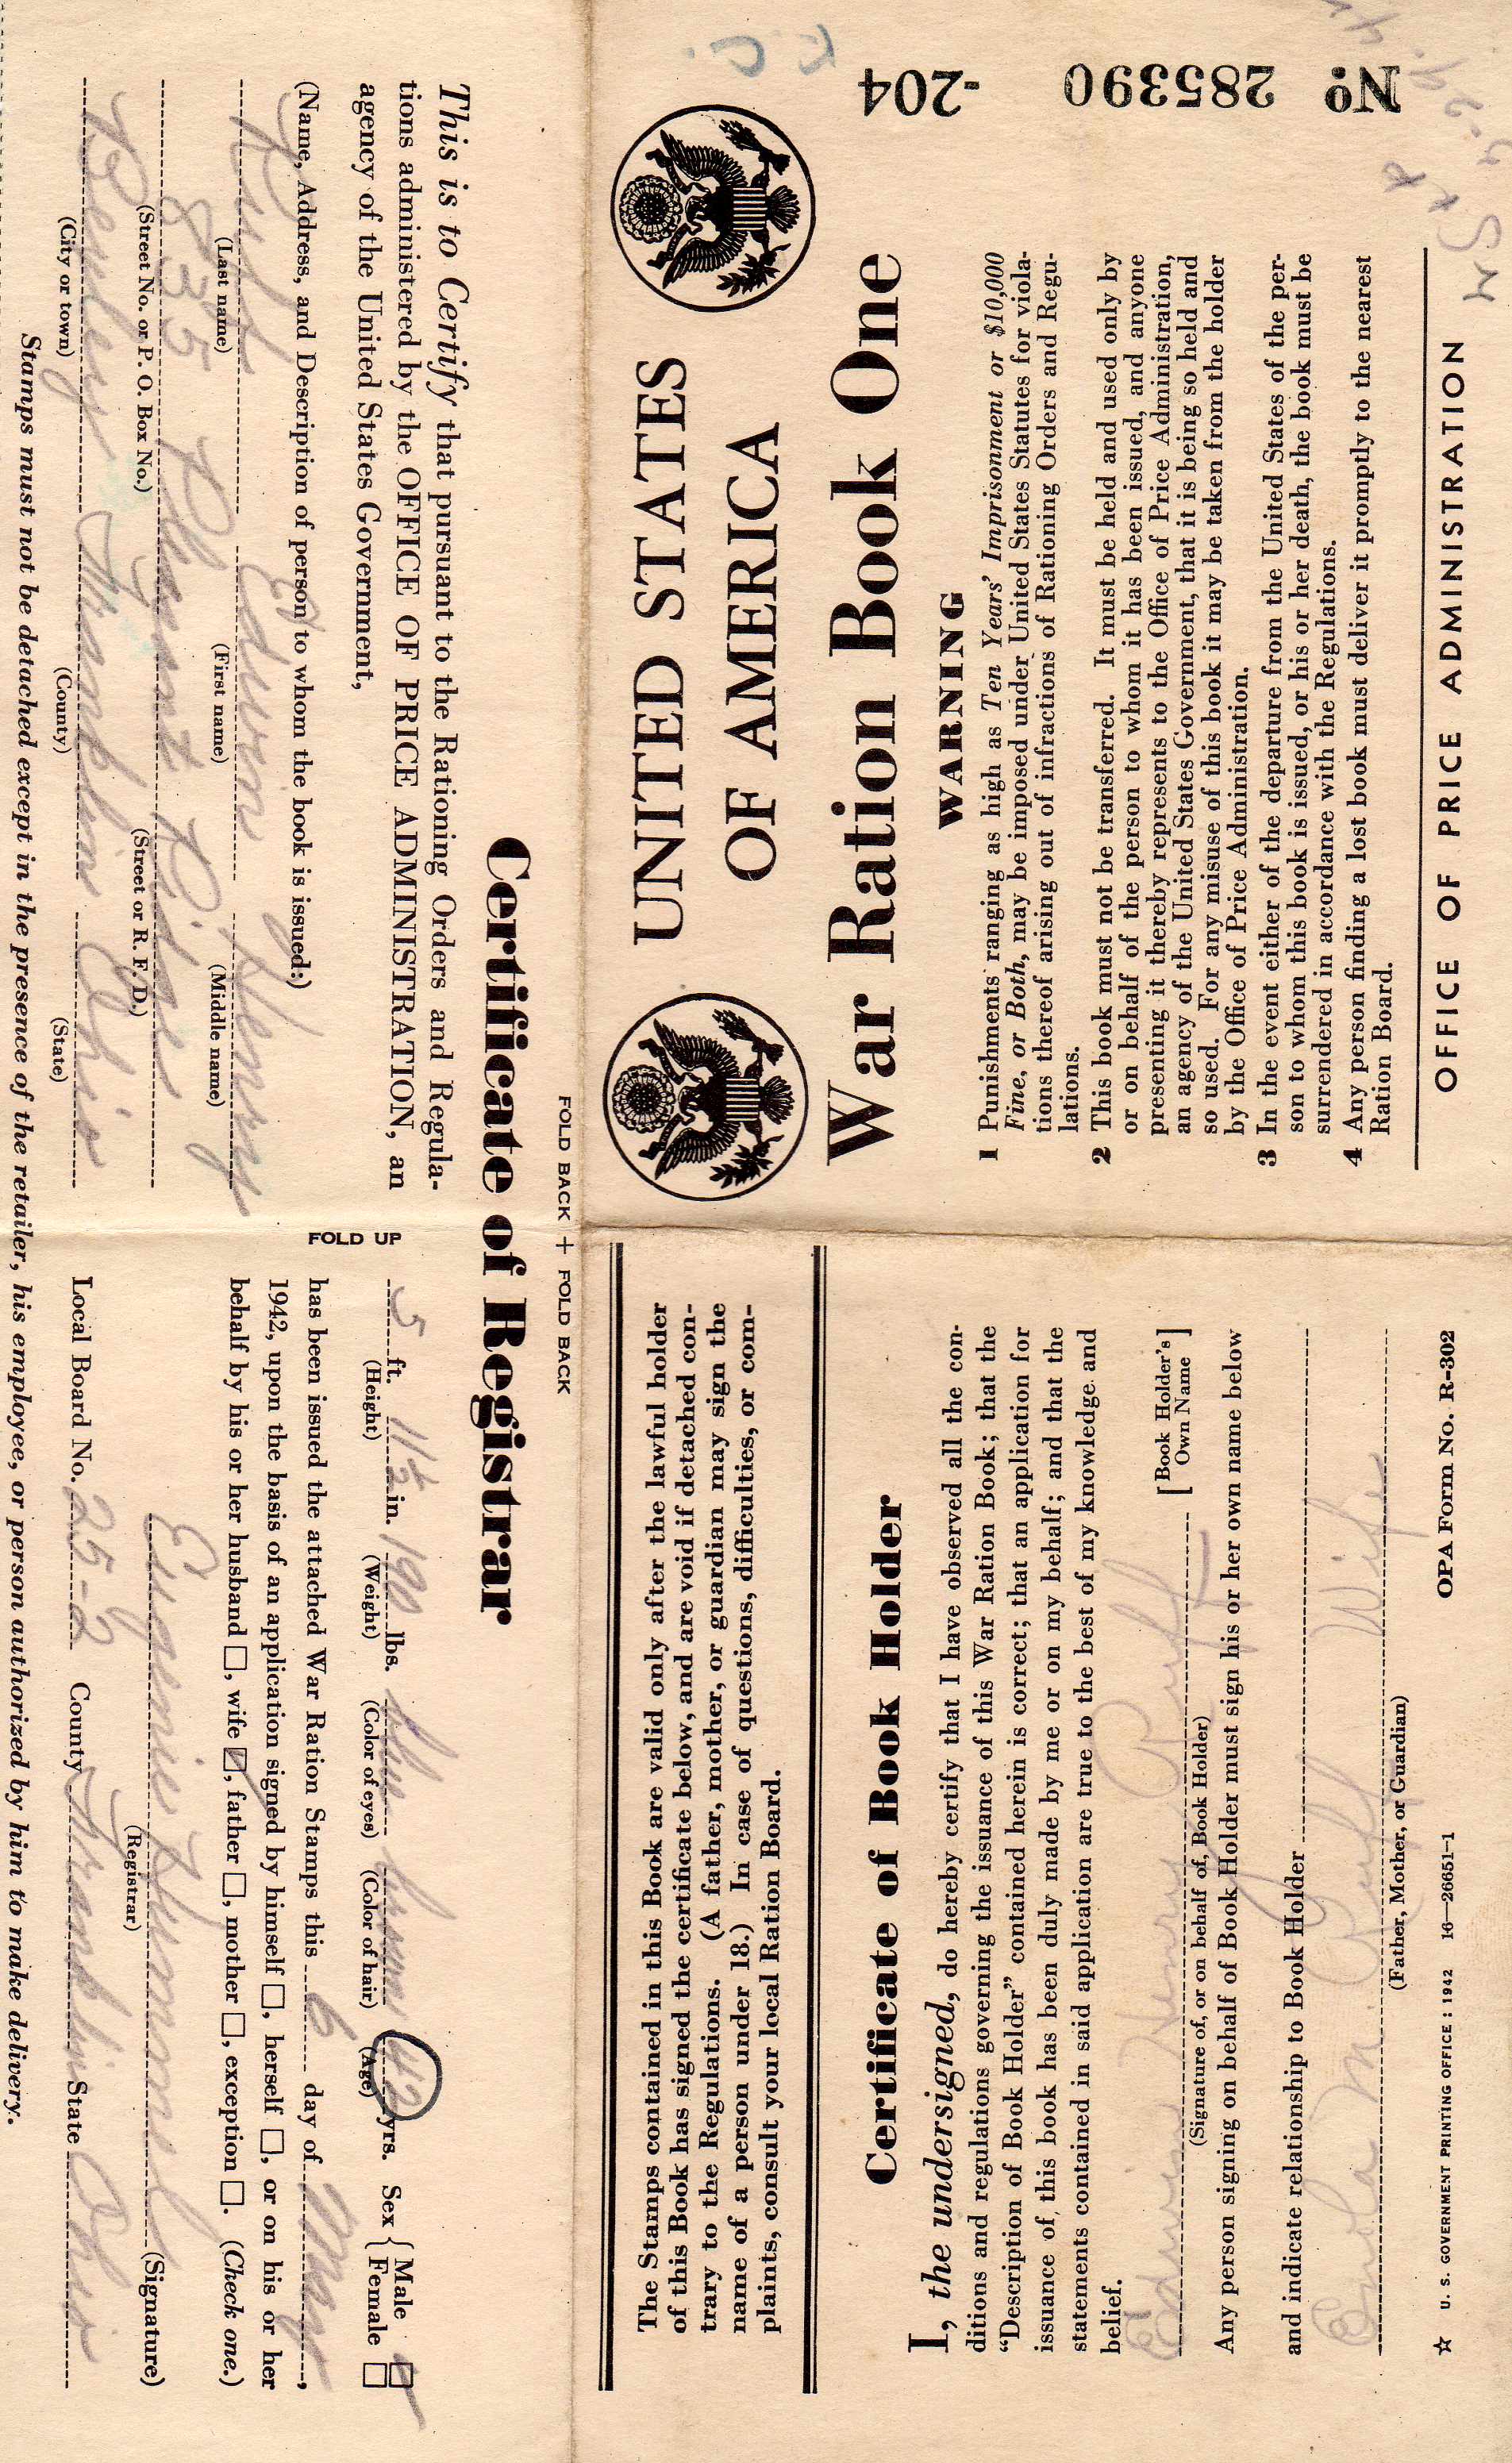 Nº 285390 -204
UNITED STATES
OF AMERICA
War Ration Book One
WARNING
1 Punishments ranging as high as Ten Years' Imprisonment or $10,000
Fine, or Both, may be imposed under United States Statutes for viola-
tions thereof arising out of infractions of Rationing Orders and Regu-
lations.
2 This book must not be transferred. It must be held and used only by
or on behalf of the person to whom it has been issued, and anyone
presenting it thereby represents to the Office of Price Administration,
an agency of the United States Government, that it is being so held and
so used. For any misuse of this book it may be taken from the holder
by the Office of Price Administration.
3 In the event either of the departure from the United States of the per-
son to whom this book is issued, or his or her death, the book must be
surrendered in accordance with the Regulations.
4 Any person finding a lost book must deliver it promptly to the nearest
Ration Board.
OFFICE OF PRICE ADMINISTRATION
The Stamps contained in this Book are valid only after the lawful holder
of this Book has signed the certificate below, and are void if detached con-
trary to the Regulations. (A father, mother, or guardian may sign the
name of a person under 18.) In case of questions, difficulties, or com-
plaints, consult your local Ration Board.
Certificate of Book Holder
I, the undersigned, do hereby certify that I have observed all the con-
ditions and regulations governing the issuance of this War Ration Book; that the
“Description of Book Holder” contained herein is correct; that an application for
issuance of this book has been duly made by me or on my behalf; and that the
statements contained in said application are true to the best of my knowledge and
belief.
Edwin Henry Ruff [Book Holder's Own Name]
(Signature of, or on behalf of, Book Holder)
Any person signing on behalf of Book Holder must sign his or her own name below
and indicate relationship to Book Holder
Enola M. Ruff Wife
(Father, Mother, or Guardian)
☆ U. S. GOVERNMENT PRINTING OFFICE : 1942 16—26651-1 OPA Form No. R-302
FOLD BACK + FOLD BACK
Certificate of Registrar
This is to Certify that pursuant to the Rationing Orders and Regula-
tions administered by the OFFICE OF PRICE ADMINISTRATION, an
agency of the United States Government,
(Name, Address, and Description of person to whom the book is issued:)
Ruff Edwin Henry
(Last name) (First name) (Middle name)
835 Pleasant Ridge
(Street No. or P. O. Box No.) (Street or R. F. D.)
Bexley Franklin Ohio
(City or town) (County) (State)
FOLD UP
5 ft. 11½ in. 190 lbs. blue brown 42 yrs. Sex { Male ☑ Female □
(Height) (Weight) (Color of eyes) (Color of hair) (Age)
has been issued the attached War Ration Stamps this 6 day of May,
1942, upon the basis of an application signed by himself □, herself □, or on his or her
behalf by his or her husband □, wife ☑, father □, mother □, exception □. (Check one.)
Eugenie (Signature)
(Registrar)
Local Board No. 25-2 County Franklin State Ohio
Stamps must not be detached except in the presence of the retailer, his employee, or person authorized by him to make delivery.